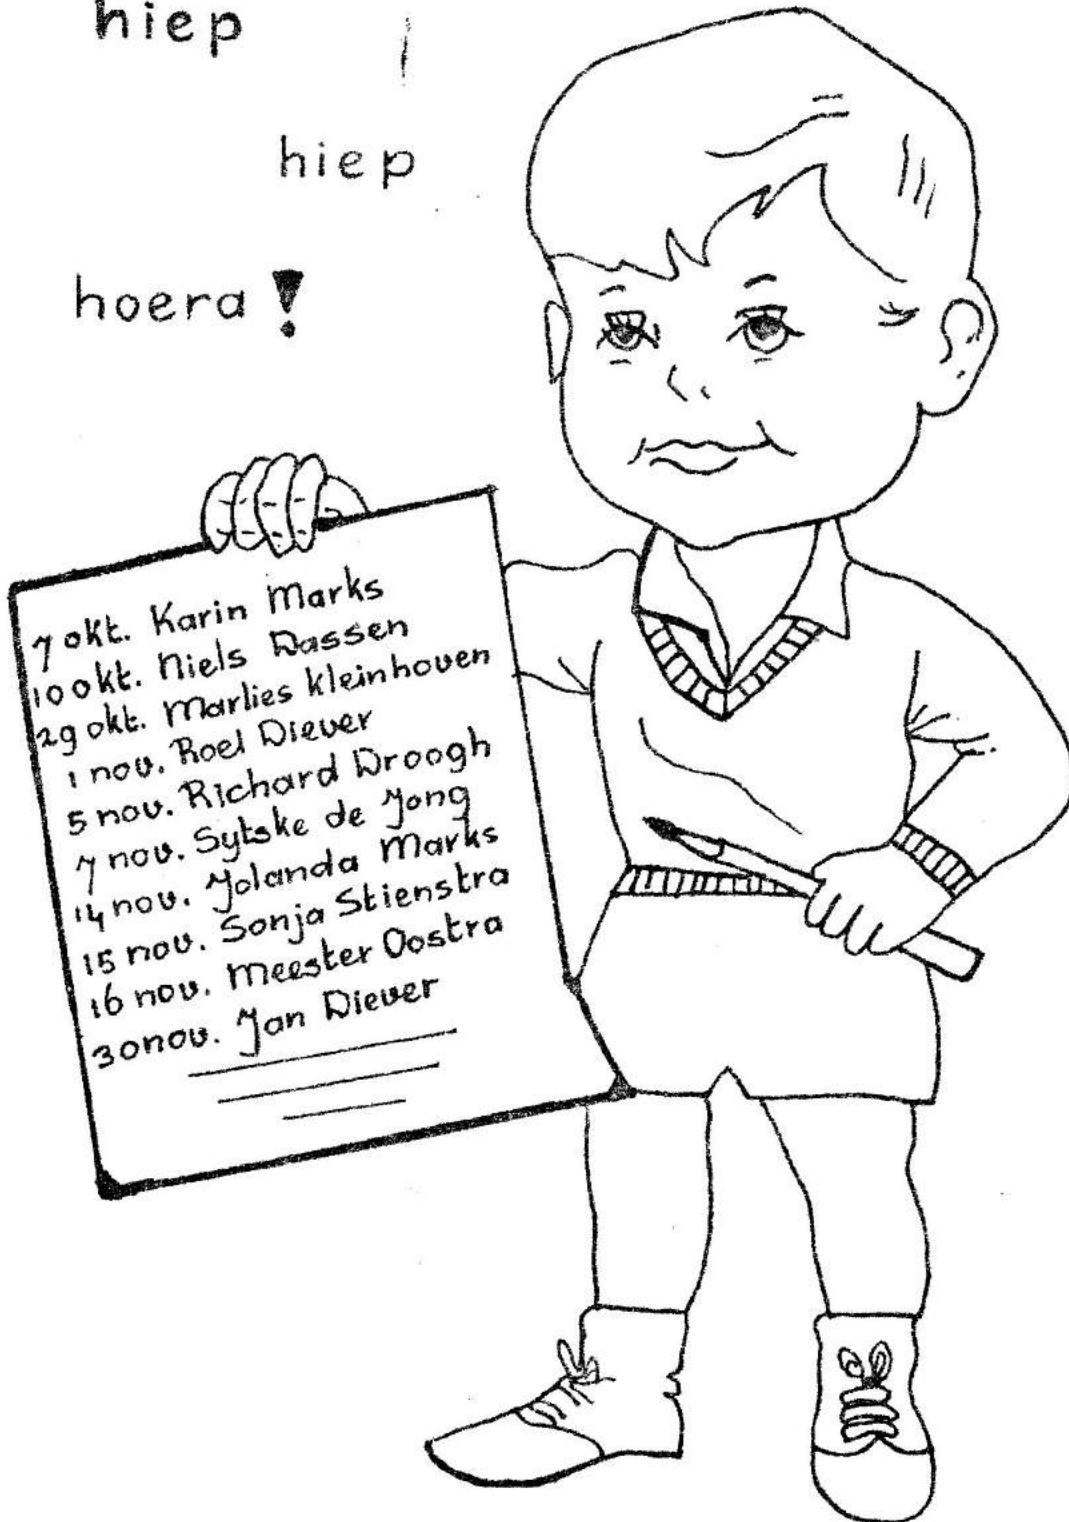 hiep
hiep
hoera!
7 okt. Karin Marks
10 okt. Niels Dassen
29 okt. Marlies Kleinhoven
1 nov. Roel Diever
5 nov. Richard Droogh
7 nov. Sytske de Jong
14 nov. Jolanda Marks
15 nov. Sonja Stienstra
16 nov. Meester Oostra
30 nov. Jan Diever